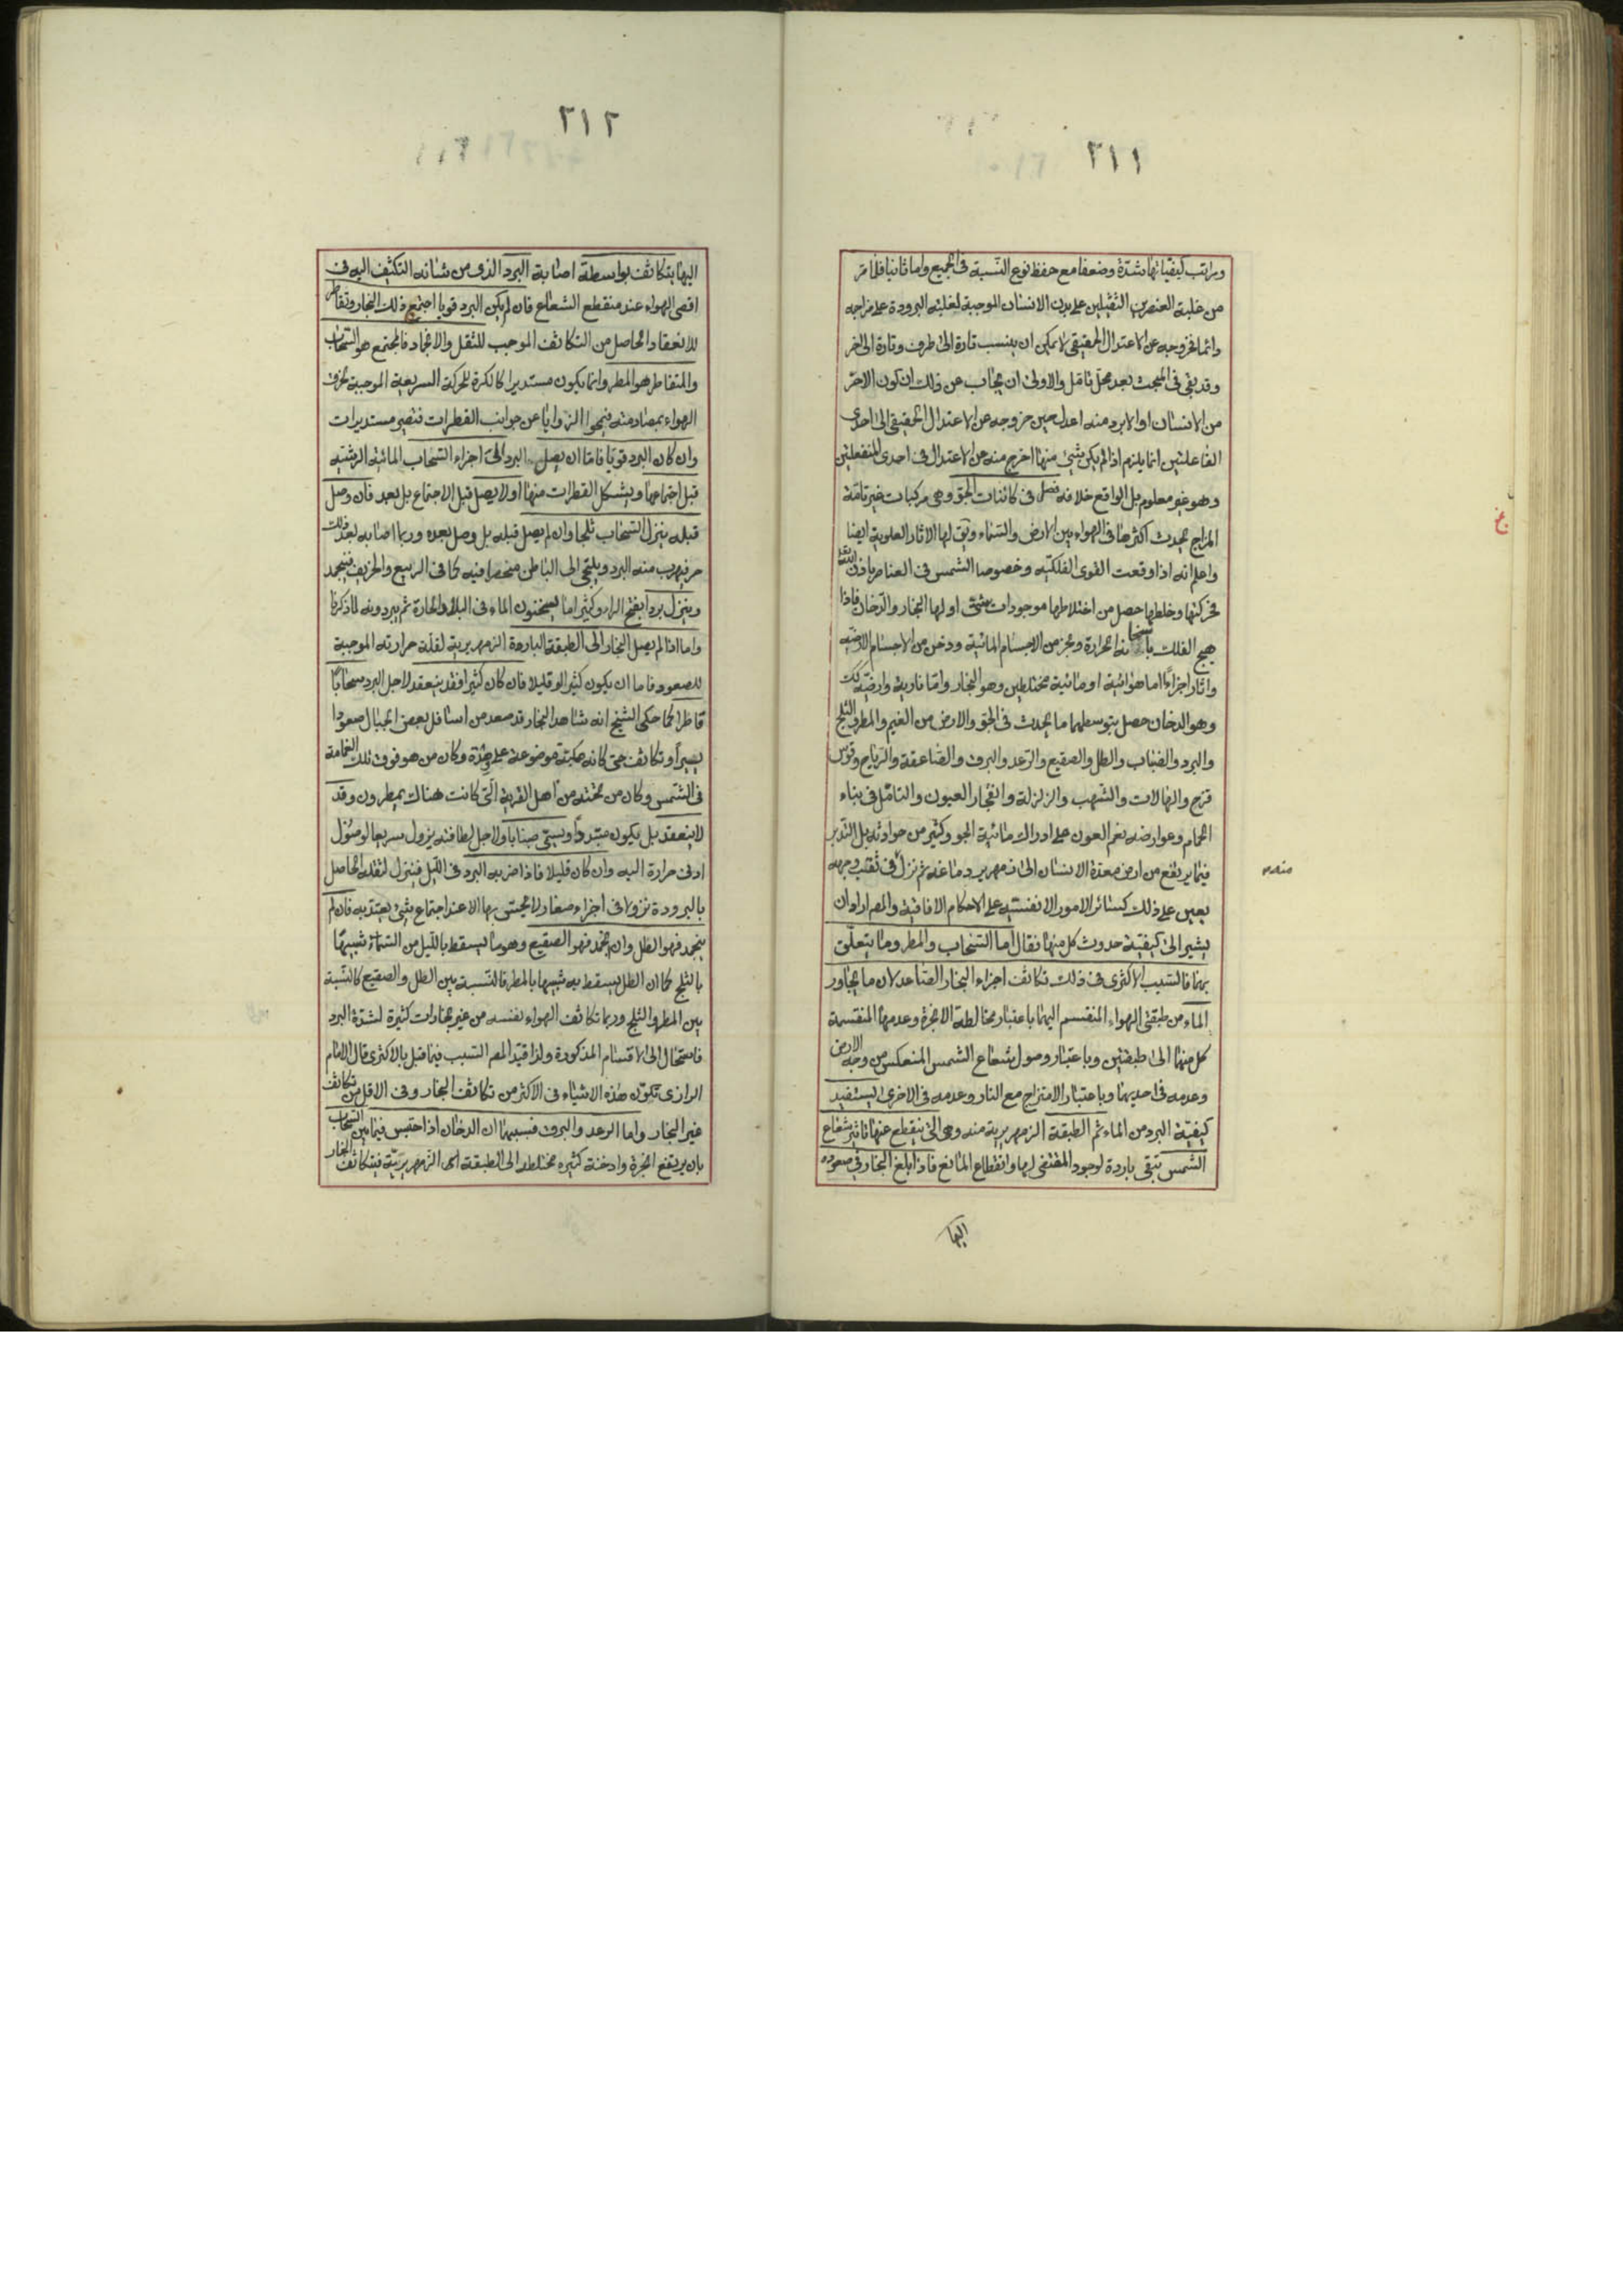 ٢١١
ومراتب كيفياتها شدّة وضعفا مع حفظ نوع النّسبة فى الجميع واما ثانيا فلما مرّ
من غلبة العنصرين الثقيلين على بدن الانسان الموجبة لغلبة البرودة على مزاجه
وانما خروجه عن الاعتدال الحقيقى لا يمكن ان ينسب تارة الى طرف وتارة الى اخر
وقد بقى فى المبحث بعد محلّ تامّل والاولى ان يجاب عن ذلك ان كون الاحرّ
من الانسان او الابرد منه اعدل حين خروجه عن الاعتدال الحقيقى الى احدى
الفاعلتين انما يلزم اذا لم يكن شئ منها اخرج منه عن الاعتدال فى احدى المنفعلتين
وهو غير معلوم بل الواقع خلافه فصل فى كائنات الجوّ وهى مركبات غير تامّة
المزاج يحدث اكثرها فى الهواء بين الارض والسّماء ويق لها الاثار العلوية ايضا
واعلم انه اذا وقعت القوى الفلكيّه وخصوصا الشمس فى العناصر باذن الله
فحركتها وخلطها حصل من اختلاطها موجودات شتّى اولها البخار والدّخان فاذا
هيج الفلك باسخانه الحرارة وبخر من الاجسام المائية ودخن من الاجسام الارضيّه
واثار اجزاءً اما هوائية او مائية مختلطين وهو البخار واما نارية وارضيّه كك
وهو الدخان حصل بتوسطهما ما يحدث فى الجوّ والارض من الغيم والمطر والثلج
والبرد والضباب والطل والصقيع والرّعد والبرق والصّاعقة والرّياح وقوس
قزح والهالات والشهب والزلزلة وانفجار العيون والتامّل فى بناء
الحمام وعوارضه نعم العون على ادراك مائية الجو وكثير من حوادثه بل التدبر
فيما يرتفع من ارض معدة الانسان الى زمهرير دماغه ثم نزل فى ثقب وجهه
يعين على ذلك كسائر الامور الانفسيّه على الاحكام الافاقية والمص اراد ان
يشير الى كيفيّة حدوث كل منها فقال اما السّحاب والمطر وما يتعلّق
بهما فالسّبب الاكثرى فى ذلك تكاثف اجزاء البخار الصّاعد لان ما يجاور
الماء من طبقتى الهواء المنقسم اليهما باعتبار مخالطة الابخرة وعدمها المنقسمة
كل منهما الى طبقتين وباعتبار وصول شعاع الشمس المنعكس من وجه الارض
وعدمه فى احديهما وباعتبار الامتزاج مع النار وعدمه فى الاخرى ليستفيد
كيفيّة البرد من الماء ثم الطبقة الزمهريرية منه وهى التى ينقطع عنها تاثير شعاع
الشمس تبقى باردة لوجود المقتضى لها وانقطاع المانع فاذا بلغ البخار فى صعوده
اليها
٢١٢
اليها يتكاثف بواسطة اصابة البرد الذى من شانه التكثيف اليه فى
اقصى الهواء عند منقطع الشعاع فان لم يكن البرد قويا اجتمع ذلك البخار وتقاطر
للانعقاد الحاصل من التكاثف الموجب للثقل والانجماد فالمجتمع هو السّحاب
والمتقاطر هو المطر وانما يكون مستديرا كالكرة للحركة السريعة الموجبة لخرق
الهواء بمصادمته فيمحوا الزوايا عن جوانب القطرات فتصير مستديرات
وان كان البرد قويّا فاما ان يصل البرد الى اجزاء السّحاب المائيّة الرشيّه
قبل اجتماعها ويتشكل القطرات منها او لا يصل قبل الاجتماع بل بعد فان وصل
قبله ينزل السّحاب ثلجا وان لم يصل قبله بل وصل بعده وربما اصابه بعد ذلك
حر فيهرب منه البرد ويلتجى الى الباطن منحصرا فيه كما فى الربيع والخريف فينجمد
وينزل بردا بفتح الراء وكثيرا ما يسخنون الماء فى البلاد الحارة ثم يبردونه لما ذكرنا
واما اذا لم يصل البخار الى الطبقة الباردة الزمهريرية لقلة حرارته الموجبة
للصعود فاما ان يكون كثيرا او قليلا فان كان كثيرا فقد ينعقد لاجل البرد سحابًا
قاطرا كما حكى الشيخ انه شاهد البخار قد صعد من اسافل بعض الجبال صعودا
يسيرًا وتكاثف حتى كانه مكبّة موضوعة على وهدة وكان من هو فوق تلك الغمامة
فى الشمس وكان من تحته من اهل القرية الّتى كانت هناك يمطرون وقد
لا ينعقد بل يكون متبدّدًا ويسمّى ضبابا ولاجل لطافته يزول سريعا لوصول
ادنى حرارة اليه وان كان قليلا فاذا ضربه البرد فى الليل فينزل لثقله الحاصل
بالبرودة نزولا فى اجزاء صغار لا يحسّ بها الا عند اجتماع شئ يعتد به فان لم
ينجمد فهو الطل وان انجمد فهو الصقيع وهو ما يسقط بالليل من السّماء شبيها
بالثلج كما ان الطل يسقط به شبيها بالمطر فالنّسبة بين الطل والصقيع كالنّسبة
بين المطر والثلج وربما تكاثف الهواء بنفسه من غير بخارات كثيرة لشدّة البرد
فاستحال الى الاقسام المذكورة ولذا قيّد المص السّبب فيما قبل بالاكثرى قال الامام
الرازى تكوّن هذه الاشياء فى الاكثر من تكاثف البخار وفى الاقل من تكاثف
غير البخار واما الرعد والبرق فسببهما ان الدخان اذا احتبس فيما بين السّحاب
بان يرتفع ابخرة وادخنة كثيرة مختلطه الى الطبقة الى الزمهريريّة فيتكاثف البخار